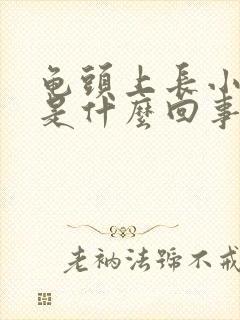 龟頭上長小
是什麼回事
老衲法號不戒